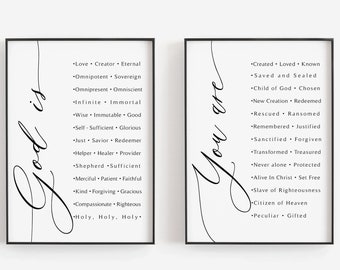 God is
•Love • Creator • Eternal
•Omnipotent • Sovereign
•Omnipresent • Omniscient
•Infinite • Immortal
•Wise • Immutable • Good
•Self - Sufficient • Glorious
•Just • Savior • Redeemer
•Helper • Healer • Provider
•Shepherd • Sufficient
•Merciful • Patient • Faithful
•Kind • Forgiving • Gracious
•Compassionate • Righteous
•Holy, Holy, Holy•
You are
•Created • Loved • Known
•Saved and Sealed
•Child of God • Chosen
•New Creation • Redeemed
•Rescued • Ransomed
•Remembered • Justified
•Sanctified • Forgiven
•Transformed • Treasured
•Never alone • Protected
•Alive In Christ • Set Free
•Slave of Righteousness
•Citizen of Heaven
•Peculiar • Gifted